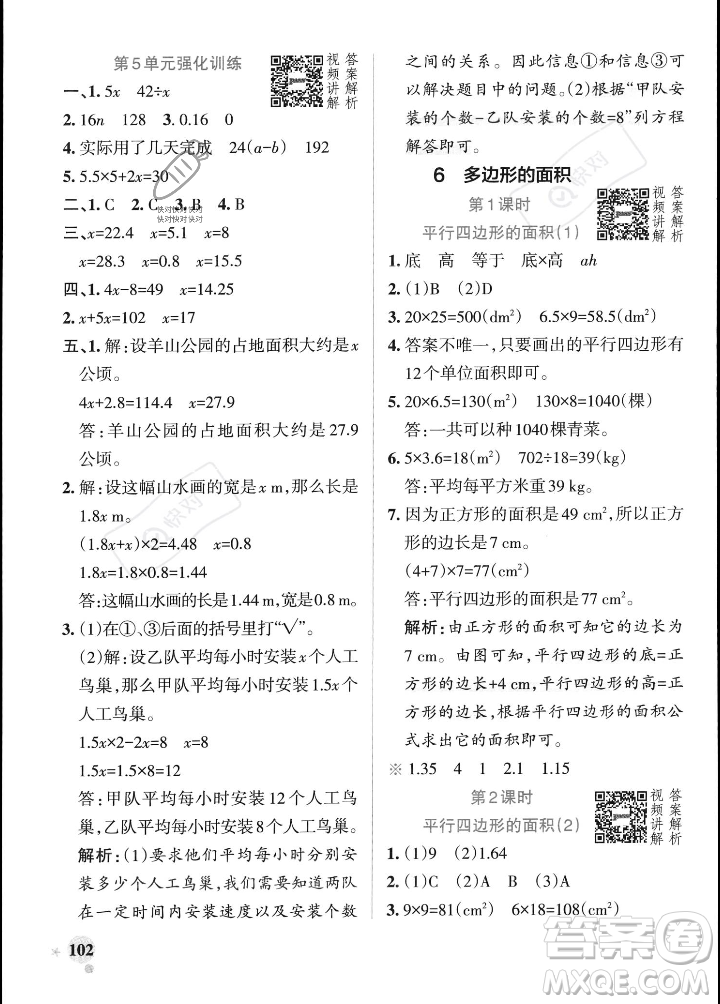 第5单元强化训练
视频讲解
答案解析
一、1. 5x 42÷x
2. 16n 128 3. 0.16 0
4. 实际用了几天完成 24(a-b) 192
5. 5.5×5+2x=30
二、1. C 2. C 3. B 4. B
快对快对快对
快对快对快对
三、x=22.4 x=5.1 x=8
x=28.3 x=0.8 x=0.8
四、1. 4x-8=49 x=14.25
2. x+5x=102 x=17
五、1. 解:设羊山公园的占地面积大约是x
公顷。
4x+2.8=114.4 x=27.9
答:羊山公园的占地面积大约是27.9
公顷。
2. 解:设这幅山水画的宽是x m,那么长是
1.8x m。
(1.8x+x)×2=4.48 x=0.8
1.8x=1.8×0.8=1.44
答:这幅山水画的长是1.44 m,宽是0.8 m。
3. (1)在①、③后面的括号里打“√”。
(2)解:设乙队平均每小时安装x个人工
鸟巢,那么甲队平均每小时安装1.5x个
人工鸟巢。
1.5x×2-2x=8 x=8
1.5x=1.5×8=12
答:甲队平均每小时安装12个人工鸟
巢,乙队平均每小时安装8个人工鸟巢。
解析:(1)要求他们平均每小时分别安
装多少个人工鸟巢,我们需要知道两队
在一定时间内安装速度以及安装个数
102
之间的关系。因此信息①和信息③可
以解决题目中的问题。(2)根据“甲队安
装的个数-乙队安装的个数=8”列方程
解答即可。
6 多边形的面积
第1课时
平行四边形的面积(1)
视频讲解
答案解析
1. 底 高 等于 底×高 ah
2. (1)B (2)D
3. 20×25=500(dm²) 6.5×9=58.5(dm²)
4. 答案不唯一,只要画出的平行四边形有
12个单位面积即可。
5. 20×6.5=130(m²) 130×8=1040(棵)
答:一共可以种1040棵青菜。
6. 5×3.6=18(m²) 702÷18=39(kg)
答:平均每平方米重39 kg。
7. 因为正方形的面积是49 cm²,所以正方
形的边长是7 cm。
(4+7)×7=77(cm²)
答:平行四边形的面积是77 cm²。
解析:由正方形的面积可知它的边长为
7 cm。由图可知,平行四边形的底=正
方形的边长+4 cm,平行四边形的高=正
方形的边长,根据平行四边形的面积公
式求出它的面积即可。
※ 1.35 4 1 2.1 1.15
第2课时
平行四边形的面积(2)
视频讲解
答案解析
1. (1)9 (2)1.64
2. (1)C (2)A (3)A
3. 9×9=81(cm²) 6×18=108(cm²)
答案圈
MXQE.COM